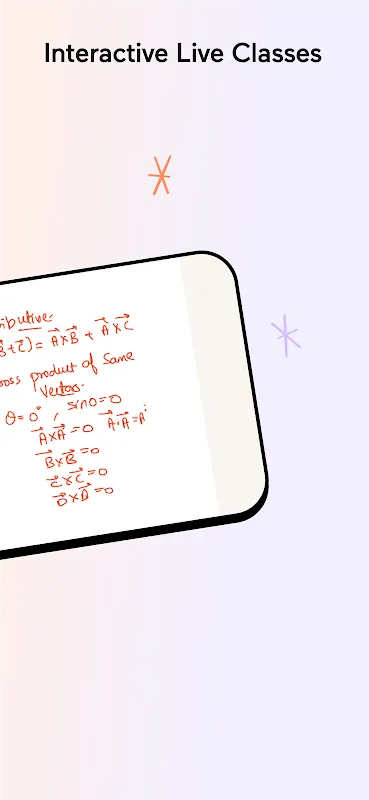 Interactive Live Classes
ributive.
B⃗+C⃗) = A⃗×B⃗ + A⃗×C⃗
ross product of same
Vectors.
θ=0°, sin0=0
A⃗×A⃗=0 A⃗·A⃗=A²
B⃗×B⃗=0
C⃗×C⃗=0
D⃗×D⃗=0